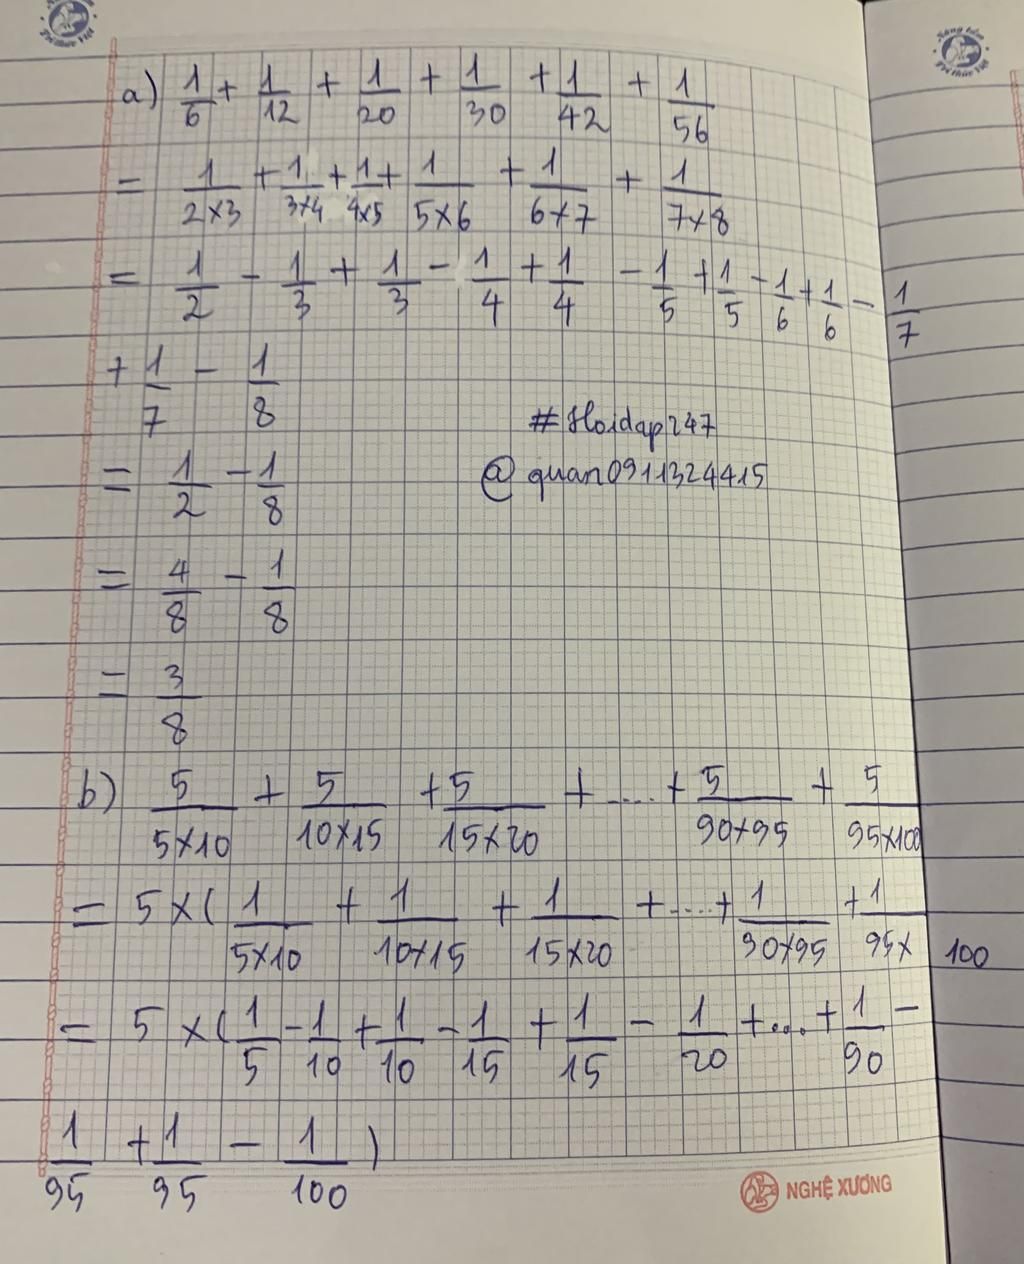 Sáng tấm
Trí thức Việt
Sáng tấm
Trí thức Việt
a) 1/6 + 1/12 + 1/20 + 1/30 + 1/42 + 1/56
= 1/2×3 + 1/3×4 + 1/4×5 + 1/5×6 + 1/6×7 + 1/7×8
= 1/2 - 1/3 + 1/3 - 1/4 + 1/4 - 1/5 + 1/5 - 1/6 + 1/6 - 1/7
+ 1/7 - 1/8
#Hoidap247
= 1/2 - 1/8
@quan0911324415
= 4/8 - 1/8
= 3/8
b) 5/5×10 + 5/10×15 + 5/15×20 + .... + 5/90×95 + 5/95×100
= 5 × ( 1/5×10 + 1/10×15 + 1/15×20 + ....+ 1/90×95 + 1/95× 100
= 5 × ( 1/5 - 1/10 + 1/10 - 1/15 + 1/15 - 1/20 +...+ 1/90 -
1/95 + 1/95 - 1/100 )
NGHỆ XƯƠNG